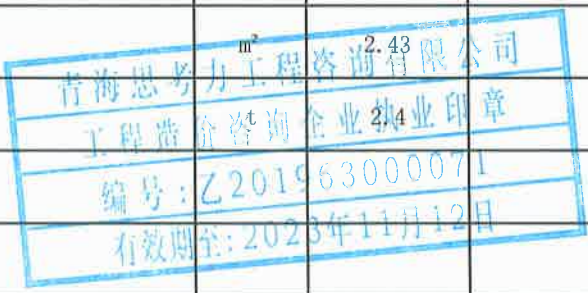 m² 2.43
青海思考力工程咨询有限公司
t 2.4
工程造价咨询企业执业印章
编号:乙201963000071
有效期至:2023年11月12日